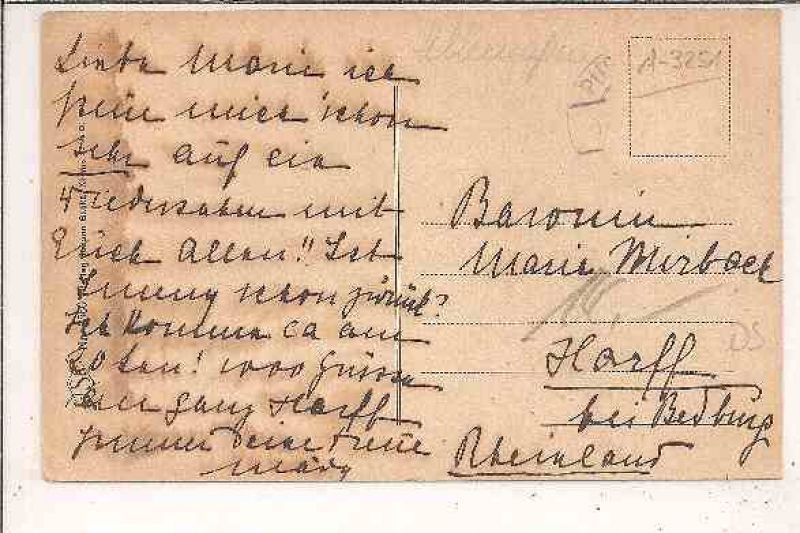 Liebe Marie ich
freue mich schon
sehr auf ein
Wiedersehen mit
Euch Allen!! Ist
schon zurück?
Ich komme ca am
20ten! 1000 Grüsse
an ganz Harff
immer Deine treue
A-3251
Baronin
Marie Mirbach
Harff
bei Bedburg
Rheinland